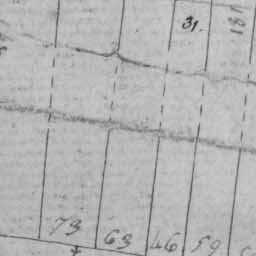 31.
181
73 63 46 59